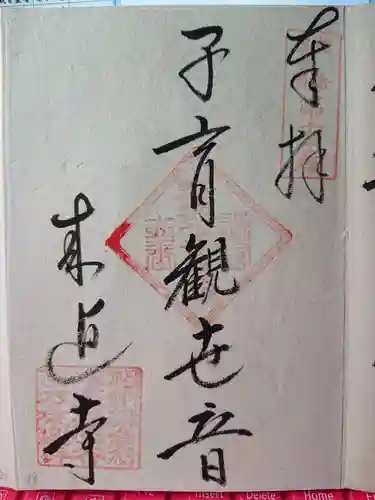 奉拝
子育観世音
来迎寺
Insert
Delete
Home